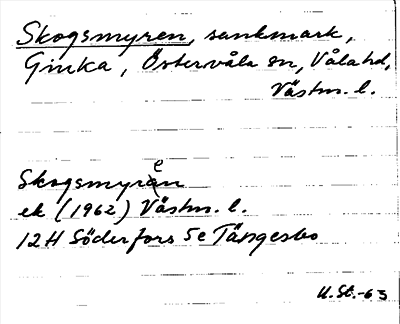 Skogsmyren, sankmark,
Ginka, Östervåla sn, Våla hd,
Västm. l.
e
Skogsmyran
ek (1962) Västm. l.
12H Söderfors 5e Tängesbo
U.St.-63